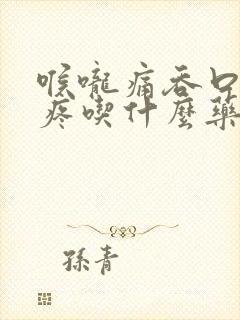 喉嚨痛吞口
疼喫什麼藥
孫青